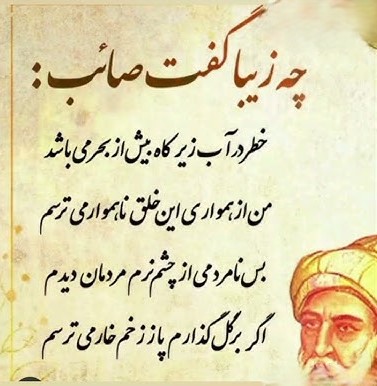 چه زیبا گفت صائب :
خطر در آب زیر کاه بیش از بحر می باشد
من از همواری این خلق ناهموار می ترسم
بس نامردمی از چشم نرم مردمان دیدم
اگر بر گل گذارم پا ز زخم خار می ترسم